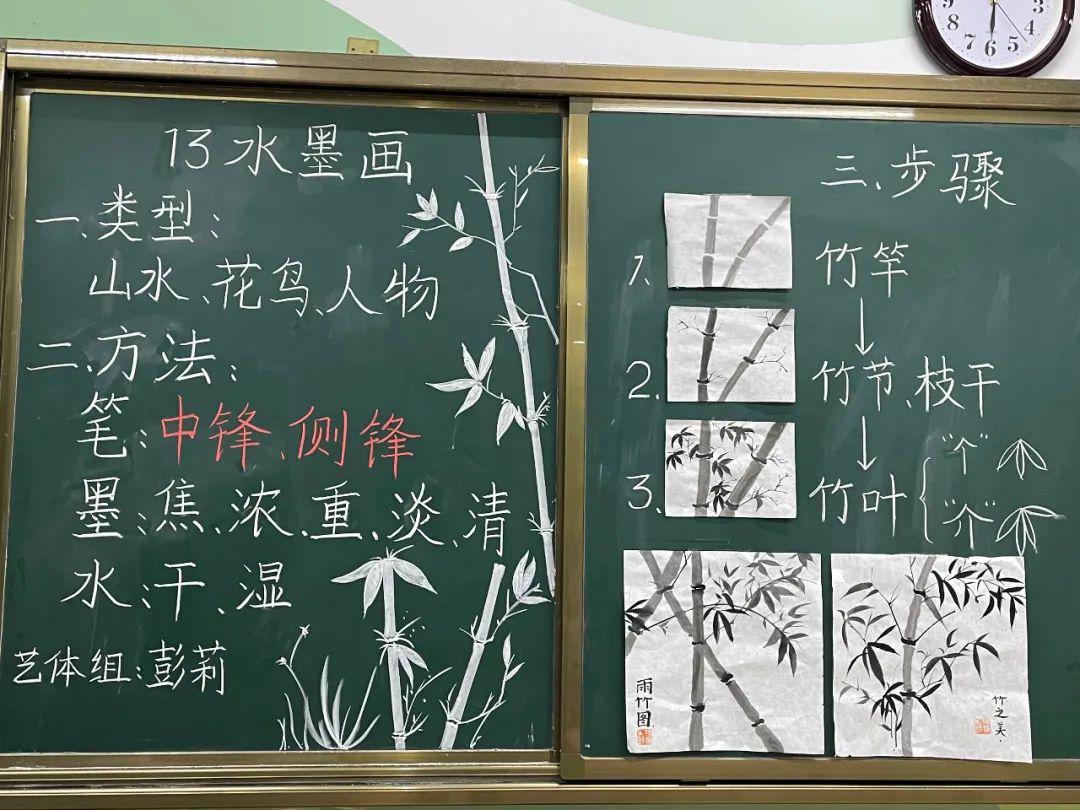 13 水墨画
一、类型：
山水、花鸟、人物
二、方法：
笔：中锋、侧锋
墨：焦、浓、重、淡、清
水：干、湿
艺体组：彭莉
三、步骤
1. 竹竿
2. 竹节、枝干
3. 竹叶 "个"
"介"
雨竹图
竹之美.
9 8 7 6 5 4 3